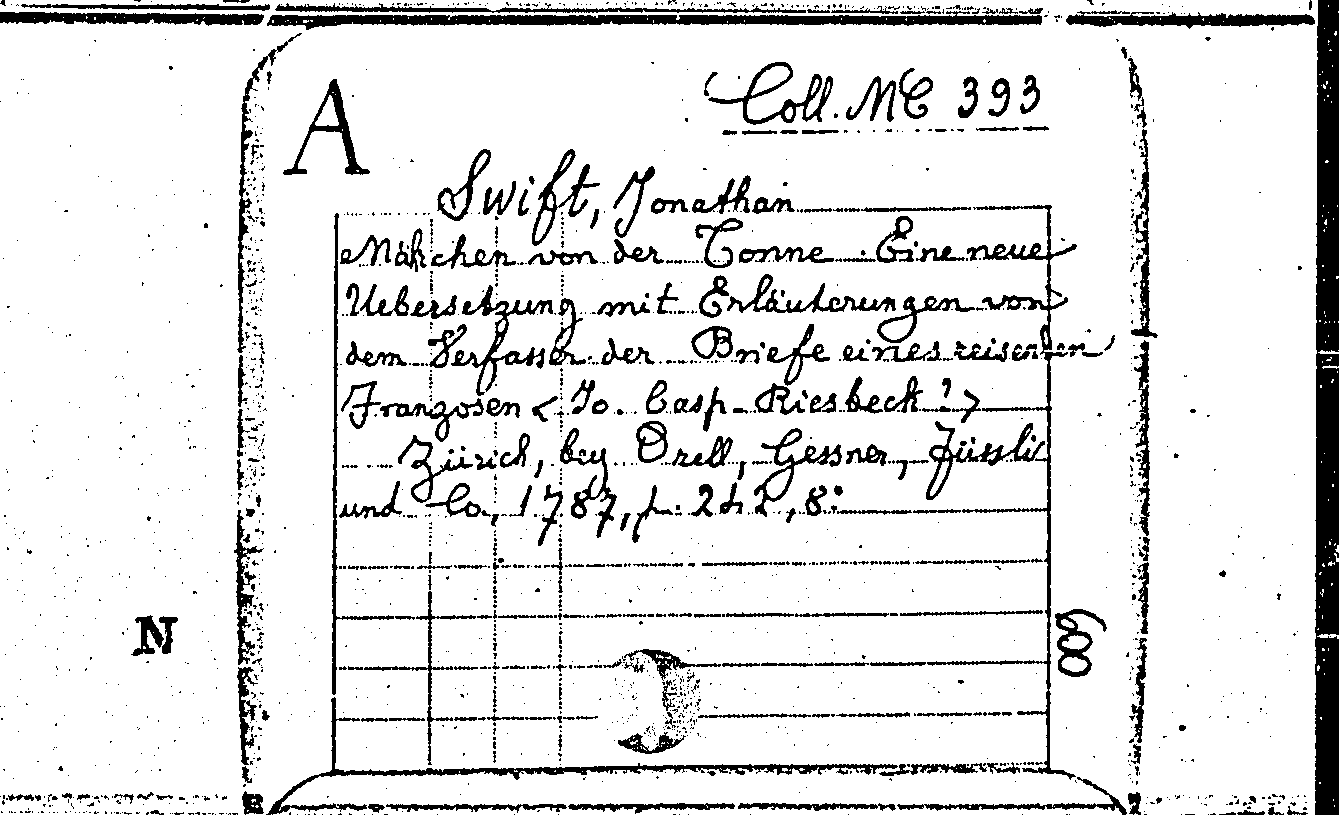 A
Coll. MC 393
Swift, Jonathan
Mährchen von der Tonne. Eine neue
Uebersetzung mit Erläuterungen von
dem Verfasser der Briefe eines reisenden
Franzosen < Jo. Casp. Riesbeck ? >
Zürich, bey Orell, Gessner, Füssli
und Co., 1787, p. 242, 8°
N
600